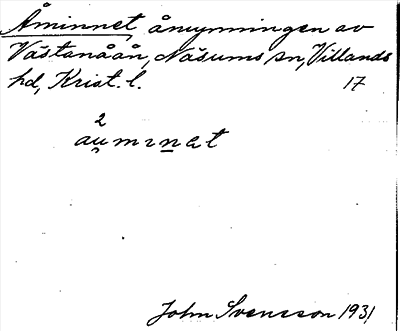 Åminnet, åmynningen av
Västanåån, Näsums sn, Villands
hd, Krist. l. 17
2
au̯mınet
John Svensson 1931